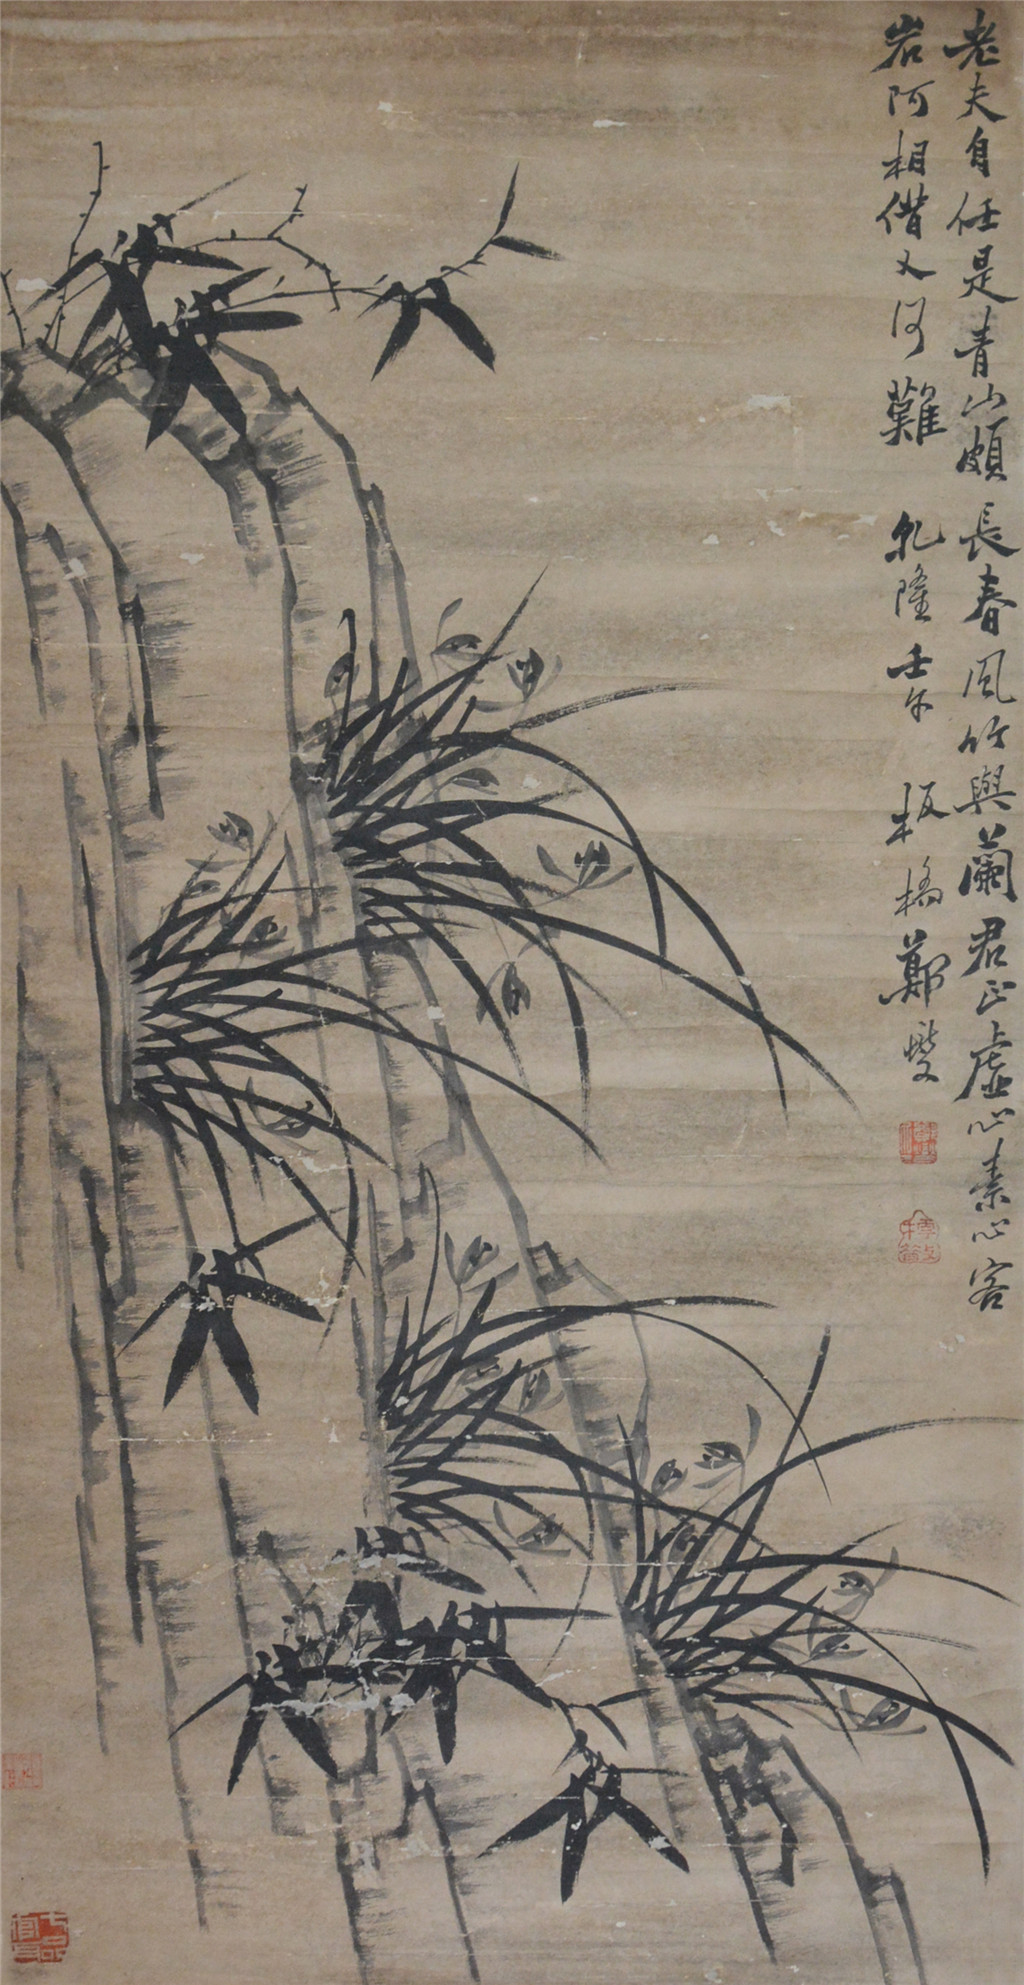 老夫自任是青山頗長春風竹與蘭君正虛心素心客
岩阿相借又何難
乾隆壬午
板橋鄭燮
七品官耳